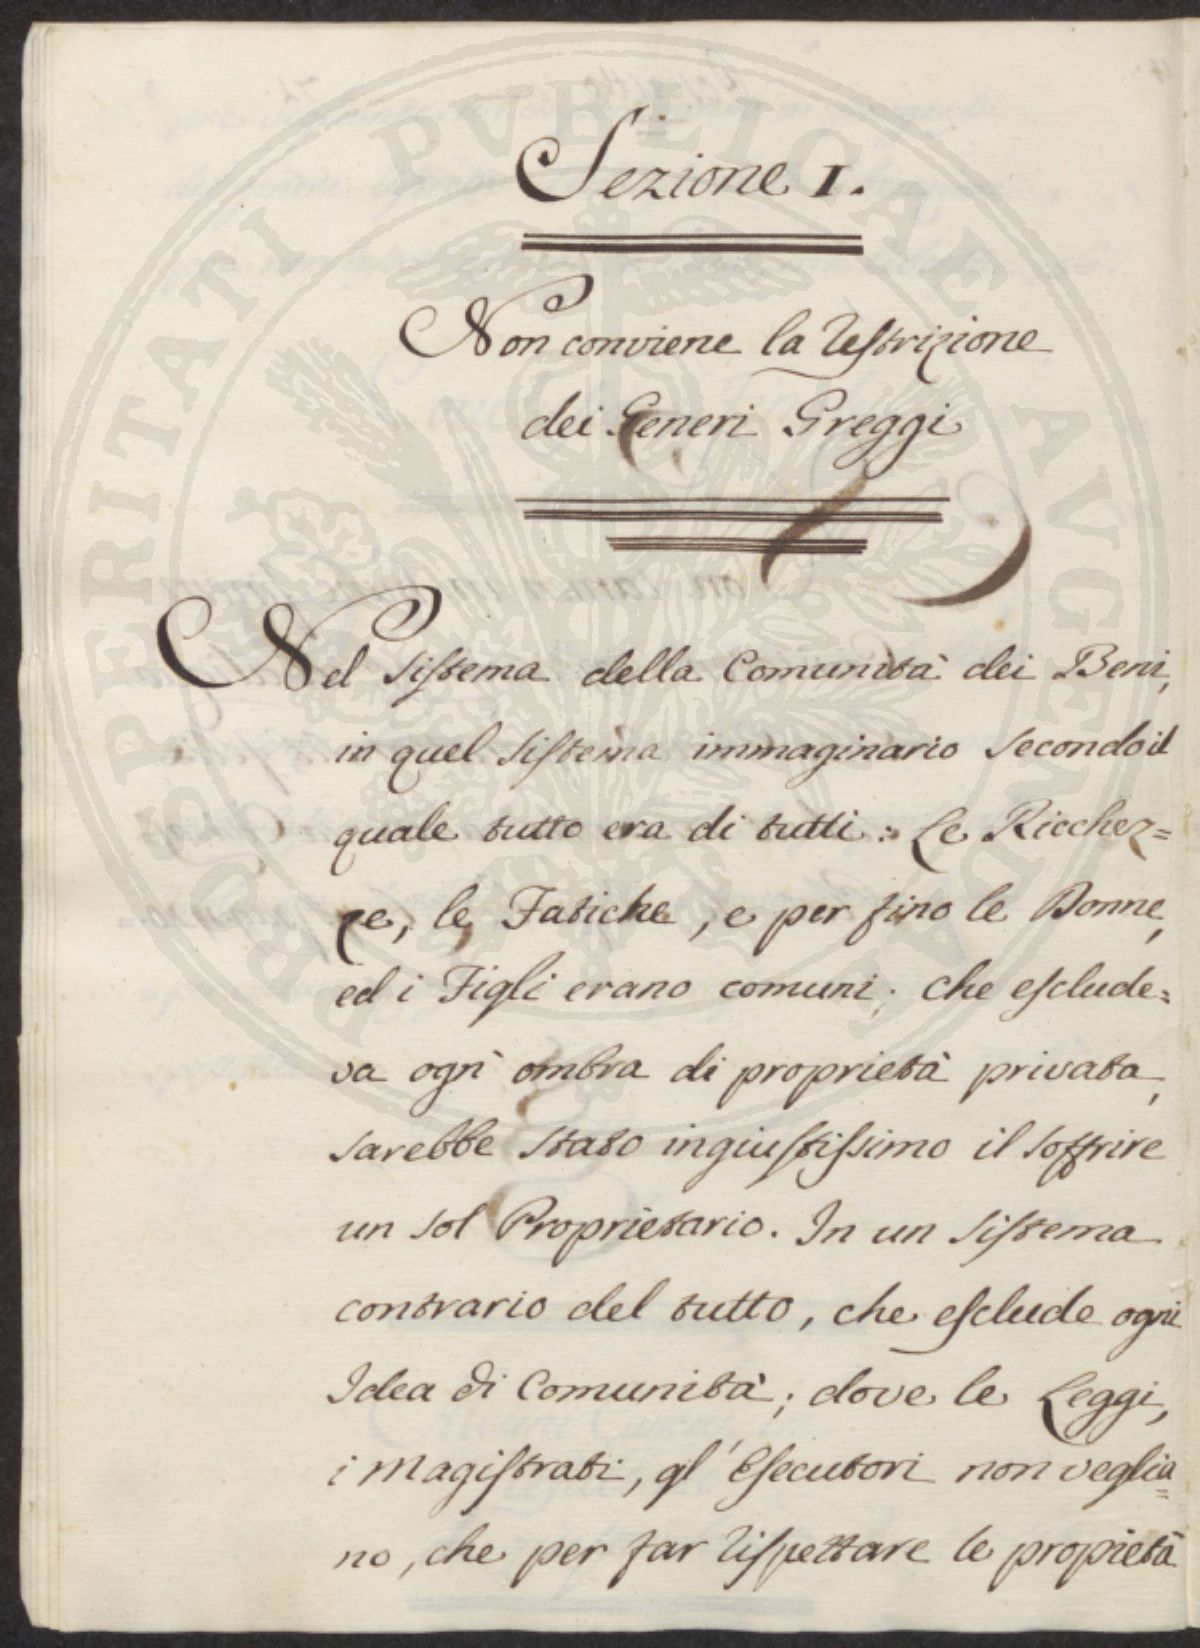 Sezione I.
Non conviene la restrizione
dei Generi Greggi
Nel sistema della Comunità dei Beni,
in quel sistema immaginario secondo il
quale tutto era di tutti: Le Ricchez=
ze, le Fatiche, e per fino le Donne,
ed i Figli erano comuni. che esclude=
va ogni ombra di proprietà privata,
sarebbe stato ingiustissimo il soffrire
un sol Proprietario. In un sistema
contrario del tutto, che esclude ogni
Idea di Comunità; dove le Leggi,
i Magistrati, gl' Esecutori non veglia=
no, che per far rispettare le propietà
PROSPERITATI PVBLICAE AVGENDAE